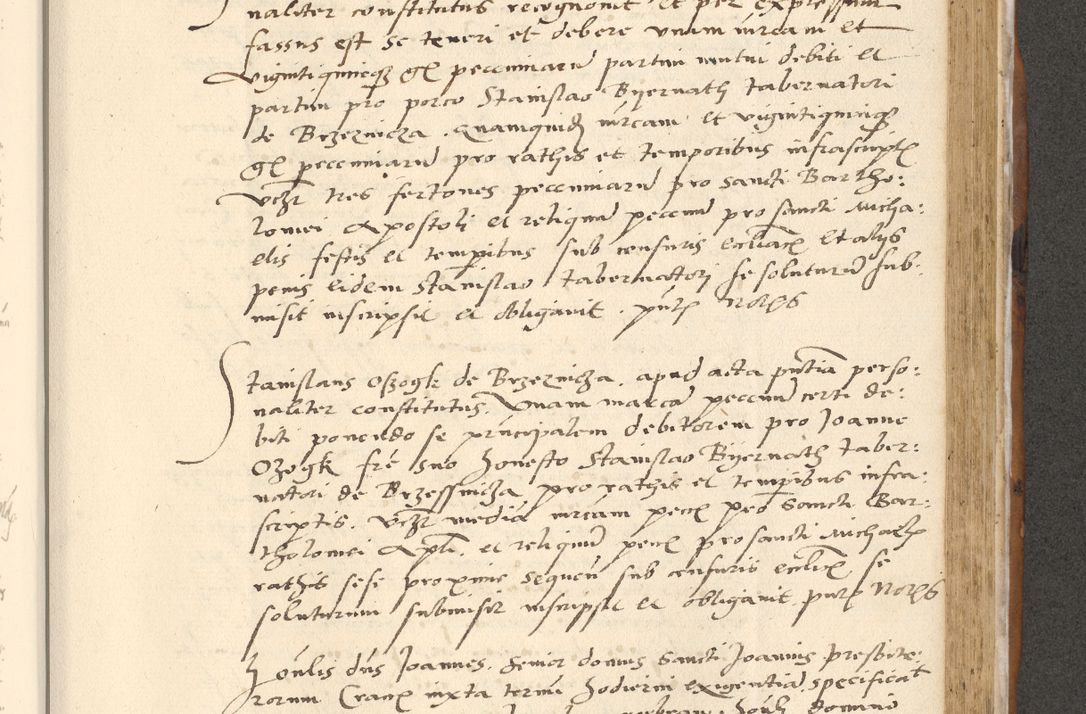 naliter constitutus recognovit et per expressum
fassus est se teneri et debere unam mrcam et
vigintiquinq gr pecuniaru partim mutui debiti et
partim pro porco Stanislao Byernath tabernatori
de Brzeznicza. quamquid mrcam et vigintiquinq
gr pecuniaru pro rathis et temporibus infrascript
vczr tres fertones pecuniaru pro sancti Bartho:
lomei Apostoli et reliqua pecun pro sancti Micha:
elis festis et temporibus sub censuris ecclticis et aliis
penis eidem Stanislao tabernattori se soluturu sub:
misit inscripsit et obligavit. pntz Noths
Stanislaus Ozogk de Brzeznicza. apud acta pntia perso:
naliter constitutus. Unam marca pecun certi de:
biti ponendo se principalem debitorem pro Joanne
Ozogk fre suo honesto Stanislao Byernath taber:
natori de Brzessnicza, pro rathis et temporibus infra:
scriptis. vczr media mrcam pecu pro Sancti Bar:
tholomei Apli. et reliqua pecu pro sancti Michaelis
rathis sese proxime sequen sub censuris ecclticis se
soluturum submisit inscripsit et obligavit pntz Noths
Honlis dns Joannes. Senior domus Sancti Joannis presbite:
rorum Crac iuxta termi hodierni exigentia specificat